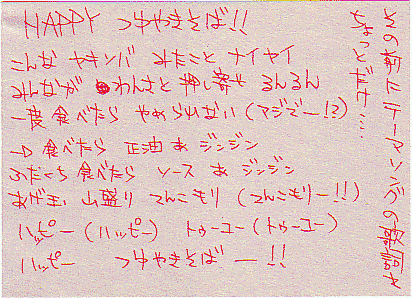 その前にテーマソングの歌詞を
ちょっとだけ…
HAPPY つゆやきそば!!
こんな ヤキソバ みたこと ナイヤイ
みんなが わんさと 押し寄せ るんるん
一度食べたら やめらんない (マジでー!?)
一口 食べたら 正油 あ ジンジン
ふたくち 食べたら ソース あ ジンジン
あげ玉 山盛り てんこもり (てんこもりー!!)
ハッピー (ハッピー) トゥーユー (トゥーユー)
ハッピー つゆやきそばー!!